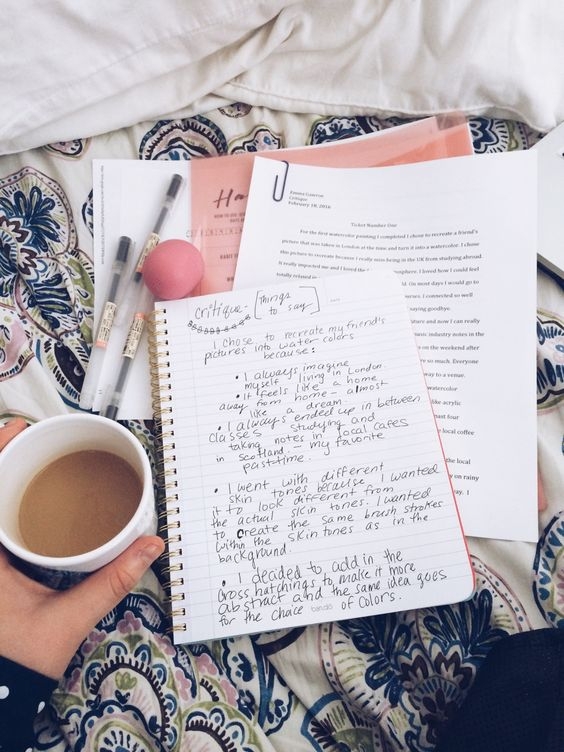 Critique
February 18, 2016
Ticket Number One
For the first watercolor painting I completed I chose to recreate a friend's
picture that was taken in London at the time and turn it into a watercolor. I chose
this picture to recreate because I really miss being in the UK from studying abroad.
It really impacted me and I loved the
sphere. I loved how I could feel
totally relaxed
On most days I would go to
nurses. I connected so well
saying goodbye.
ture and now I can really
music industry notes in the
on the weekend after
re so much. Everyone
way to a venue.
watercolor
acrylic
past four
local coffee
the local
away. I
critique - [things to say]
DATE
I chose to recreate my friend's
pictures into water colors
because:
• I always imagine
myself living in London.
• it feels like a home
away from home - almost
like a dream.
• I always ended up in between
classes studying and
taking notes in local cafes
in Scotland. - my favorite
past-time.
• I went with different
skin tones because I wanted
it to look different from
the actual skin tones. I wanted
to create the same brush strokes
within the skin tones as in the
background.
• I decided to add in the
cross hatchings to make it more
abstract and the same idea goes
for the choice of colors.
ban.do